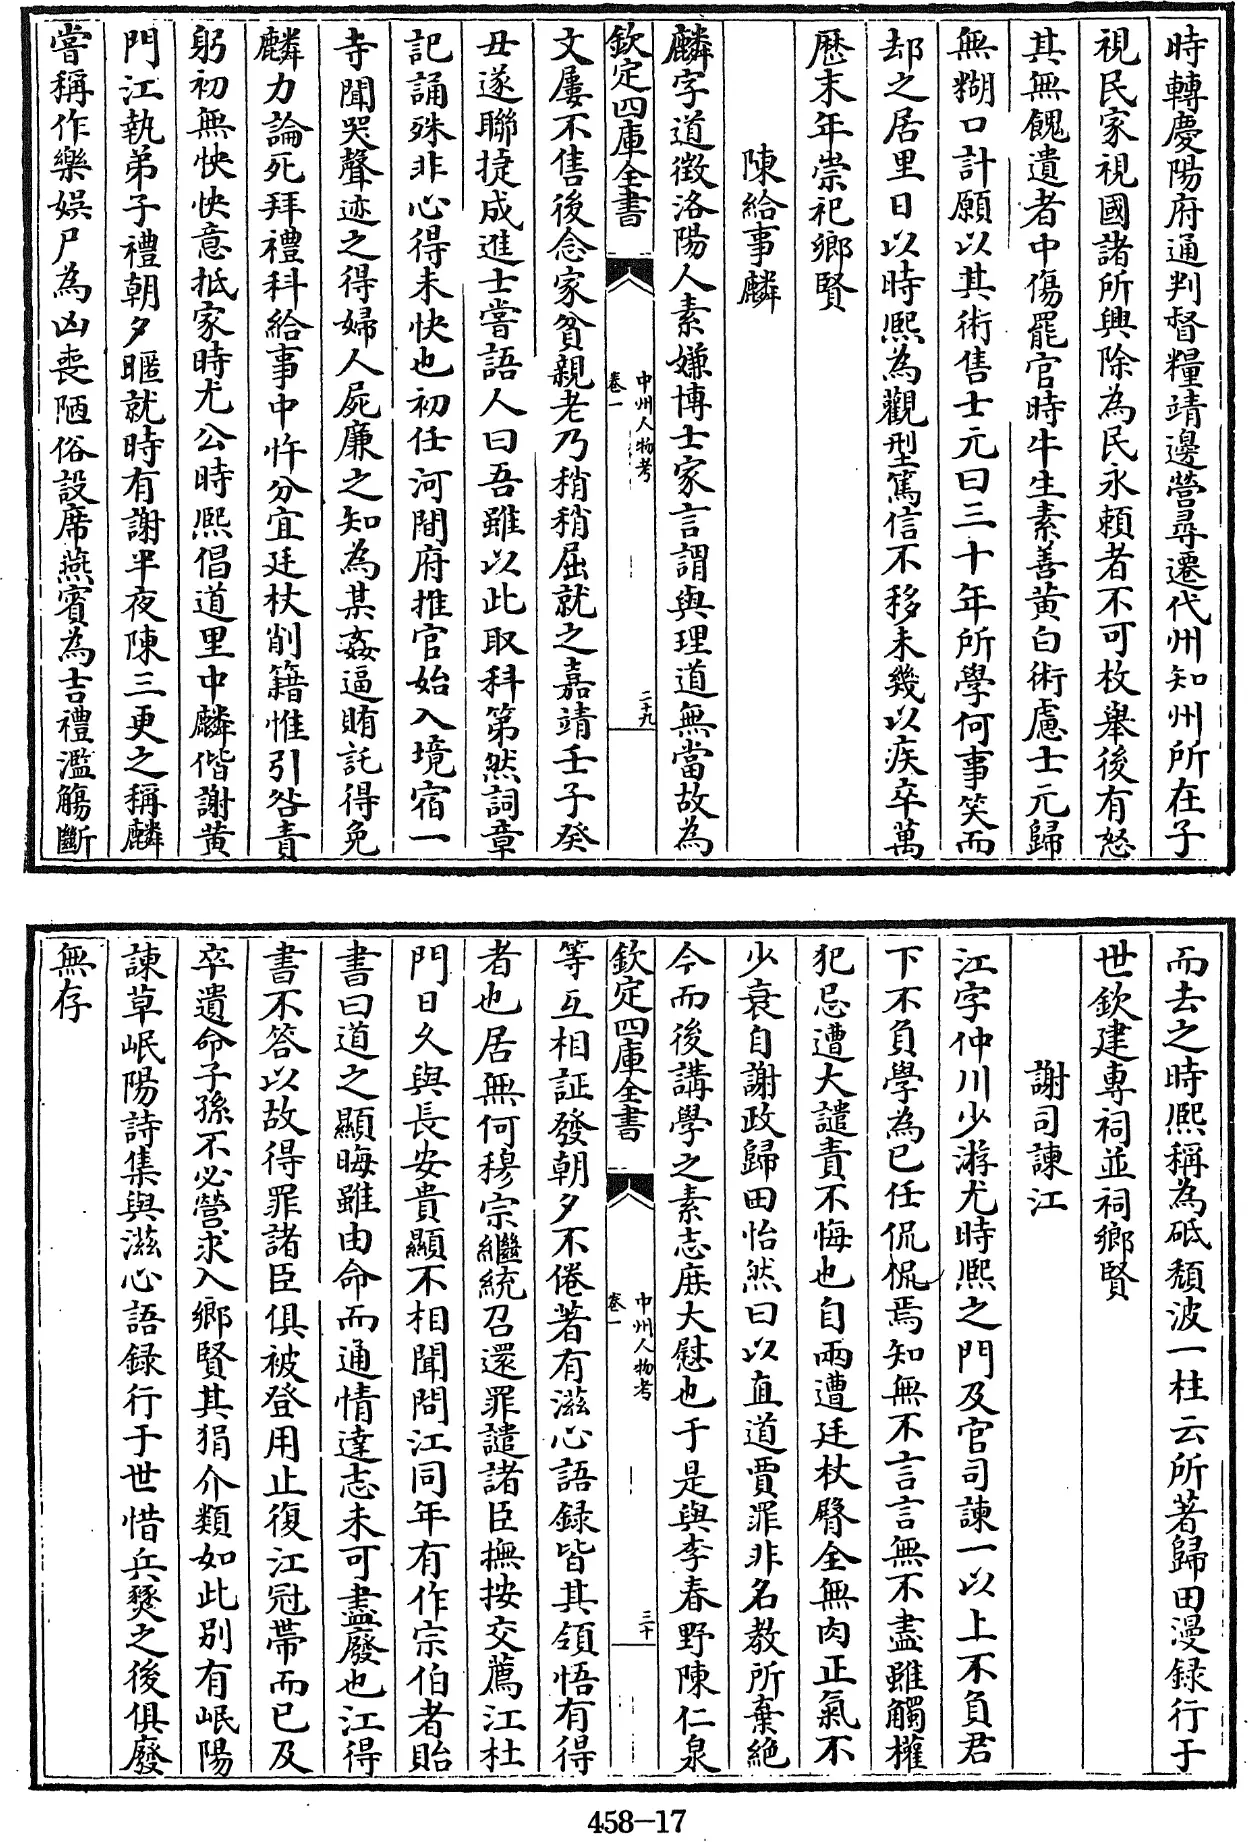 時轉慶陽府通判督糧靖邊營尋遷代州知州所在子
視民家視國諸所興除為民永賴者不可枚舉後有怒
其無餽遺者中傷罷官時牛生素善黄白術慮士元歸
無糊口計願以其術售士元曰三十年所學何事笑而
却之居里日以時熙為觀型篤信不移未幾以疾卒萬
歴末年崇祀鄉賢
陳給事麟
麟字道徵洛陽人素嫌博士家言謂與理道無當故為
欽定四庫全書
中州人物考
卷一
二十九
文屢不售後念家貧親老乃稍稍屈就之嘉靖壬子癸
丑遂聯捷成進士嘗語人曰吾雖以此取科第然詞章
記誦殊非心得未快也初任河間府推官始入境宿一
寺聞哭聲迹之得婦人屍廉之知為某姦逼賄託得免
麟力論死拜禮科給事中忤分宜廷杖削籍惟引咎責
躬初無怏怏意抵家時尤公時熙倡道里中麟偕謝黄
門江執弟子禮朝夕暱就時有謝半夜陳三更之稱麟
嘗稱作樂娯尸為凶喪陋俗設席燕賓為吉禮濫觴斷
而去之時熙稱為砥頽波一柱云所著歸田漫録行于
世欽建專祠並祠鄉賢
謝司諫江
江字仲川少游尤時熙之門及官司諫一以上不負君
下不負學為已任侃侃焉知無不言言無不盡雖觸權
犯忌遭大譴責不悔也自兩遭廷杖臀全無肉正氣不
少衰自謝政歸田怡然曰以直道賈罪非名教所棄絶
今而後講學之素志庻大慰也于是與李春野陳仁泉
欽定四庫全書
中州人物考
卷一
三十
等互相証發朝夕不倦著有滋心語録皆其領悟有得
者也居無何穆宗繼統召還罪譴諸臣撫按交薦江杜
門日久與長安貴顯不相聞問江同年有作宗伯者貽
書曰道之顯晦雖由命而通情達志未可盡廢也江得
書不答以故得罪諸臣俱被登用止復江冠帶而已及
卒遺命子孫不必營求入鄉賢其狷介類如此别有岷陽
諫草岷陽詩集與滋心語録行于世惜兵燹之後俱廢
無存
458-17